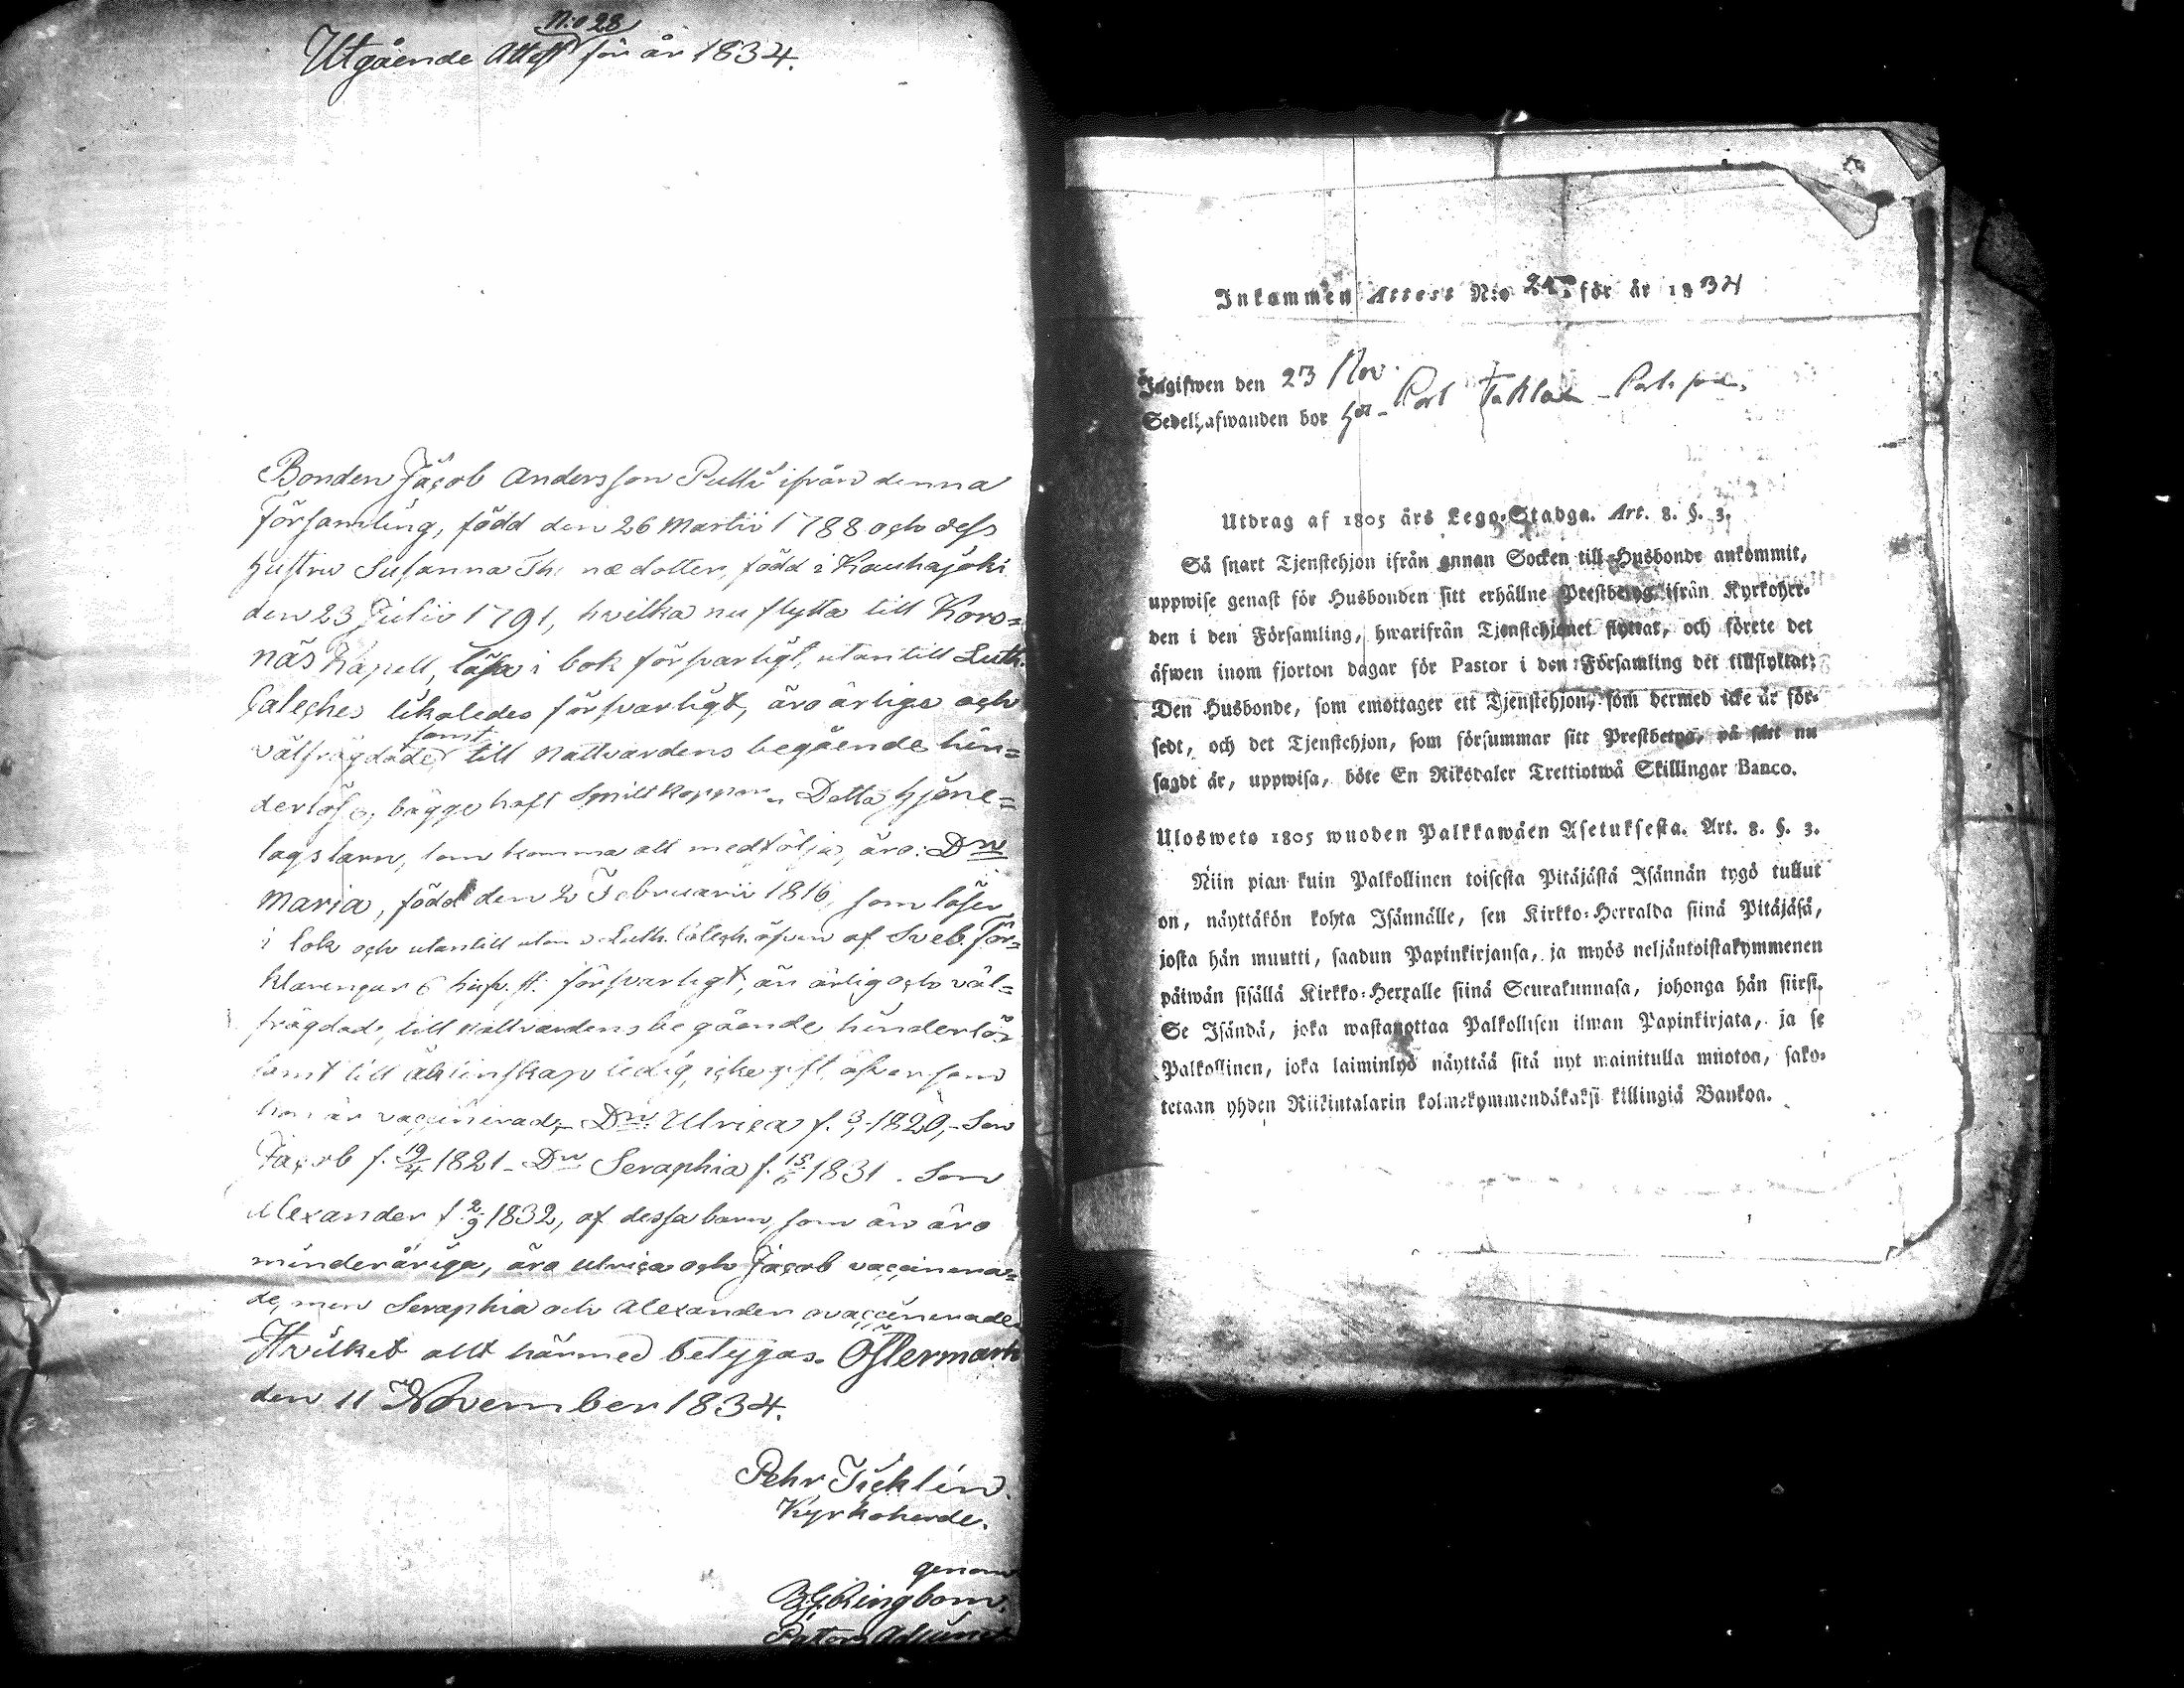 N:o 28
Utgående Attest för år 1834.
Bonden Jacob Andersson Pulli ifrån denna
Församling, född den 26 Martii 1788 och dess
hustru Susanna Th: næ dotter, född i Kauhajoki
den 23 Julii 1791, hvilka nu flytta till Kors=
näs Kapell, läsa i bok försvarligt, utantill Luth.
Caleches likaledes försvarligt, äro ärliga och
välfrägdade, samt till Nattvardens begående hin=
derlösa, bägge haft Smittkoppor. Detta hjone=
lags barn, som komma att medfölja, äro: Dr
Maria, född den 2 Februarii 1816, som läser
i bok och utantill utom Luth. Catech. äfven af Sveb. För=
klaringar 6 försvarligt, är ärlig och väl=
frägdad, till Nattvardens begående hinderlös
samt till äktenskap ledig, icke gift, äfvensom
hon är vaccinerad, Dr. Ulrica f. 1820, Son
Jacob f. 19/4 1821 - Dr Seraphia f. 1831. Son
Alexander f. 2/9 1832, af dessa barn, som än äro
minderåriga, äro Ulrica och Jacob vaccinera=
de, men Seraphia och Alexander ovaccinerade.
Hvilket allt härmed betygas. Östermark
den 11 November 1834.
Pehr Ticklén.
Kyrkoherde.
genom
Ringbom.
Pastors Adjunct
Inkommen Attest N:o 25 för år 1834
Ingifwen den 23 Nov.
Sedelhafwanden bor hos
Utdrag af 1805 års Lego-Stadga. Art. 8. §. 3.
Så snart Tjenstehjon ifrån annan Socken till Husbonde ankommit,
uppwise genast för Husbonden sitt erhållne Prestbetyg ifrån Kyrkoher-
den i den Församling, hwarifrån Tjenstehjonet flyttat, och förete det
äfwen inom fjorton dagar för Pastor i den Församling det tillflyttat;
Den Husbonde, som emottager ett Tjenstehjon, som dermed icke är för-
sedt, och det Tjenstehjon, som försummar sitt Prestbetyg, på sätt nu
sagdt är, uppwisa, böte En Riksdaler Trettiotwå Skillingar Banco.
Ulosweto 1805 wuoden Palkkawäen Asetuksesta. Art. 8. §. 3.
Niin pian kuin Palkollinen toisesta Pitäjästä Isännän tygö tullut
on, näyttäkön kohta Isännälle, sen Kirkko-Herralda siinä Pitäjäsä,
josta hän muutti, saadun Papinkirjansa, ja myös neljäntoistakymmenen
päiwän sisällä Kirkko-Herralle siinä Seurakunnasa, johonga hän siirsi.
Se Isändä, joka wastanottaa Palkollisen ilman Papinkirjata, ja se
Palkollinen, joka laiminlyö näyttää sitä nyt mainitulla muotoa, sako-
tetaan yhden Riikintalarin kolmekymmendäkaksi killingiä Bankoa.